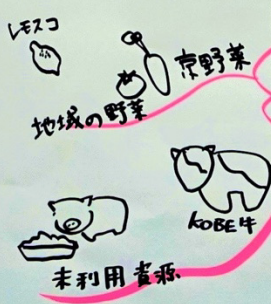 レモスコ
京野菜
地域の野菜
KOBE牛
未利用資源